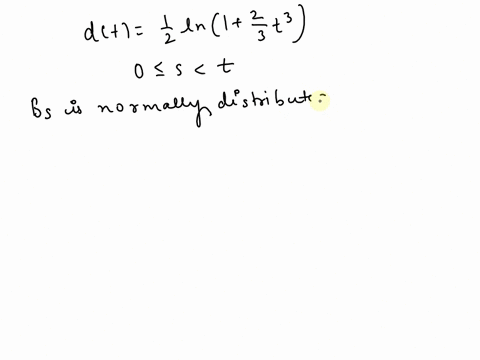 d(t) = 1/2 ln(1 + 2/3 t³)
0 ≤ s < t
Bs is normally distribut